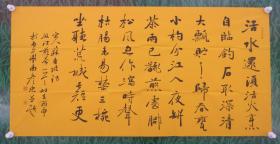 活水還須活火烹
自臨釣石取深清
大瓢貯月歸春甕
小杓分江入夜缾
茶雨已翻煎處腳
松風忽作瀉時聲
枯腸未易禁三椀
坐聽荒城長短更
宋人蘇東坡詩